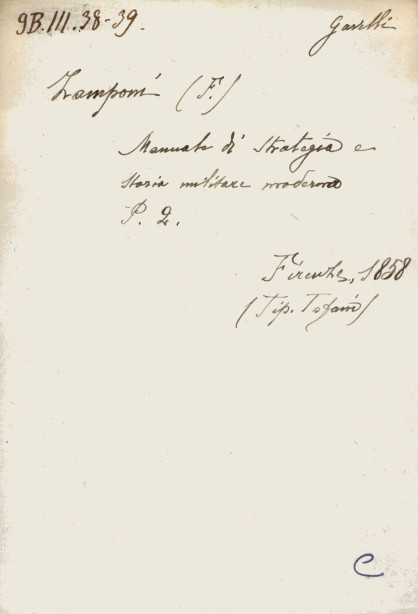 9B.III.38-39.
Garelli
Zamponi (F.)
Manuale di Strategia e
storia militare moderna
P. 2.
Firenze, 1858
(Tip. Tofani)
C